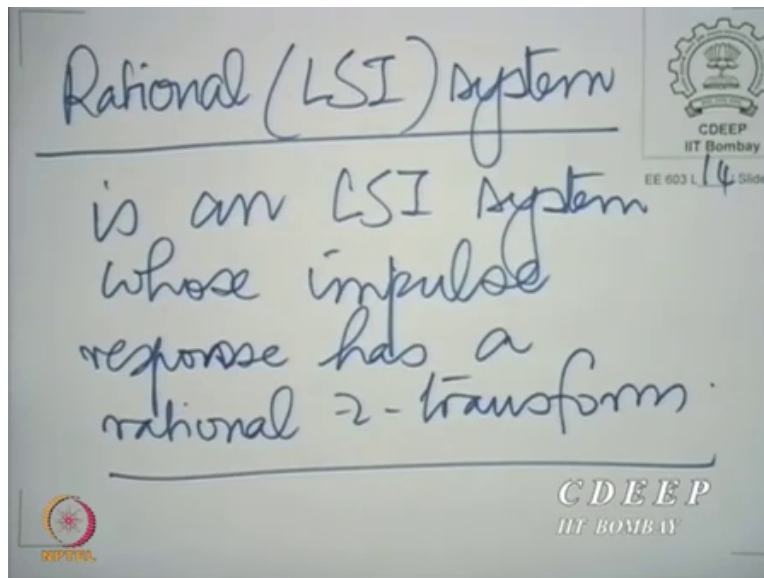 Rational (LSI) system
CDEEP
IIT Bombay
EE 603 L 14 Slide
is an LSI system
whose impulse
response has a
rational z-transform.
CDEEP
IIT BOMBAY
NPTEL